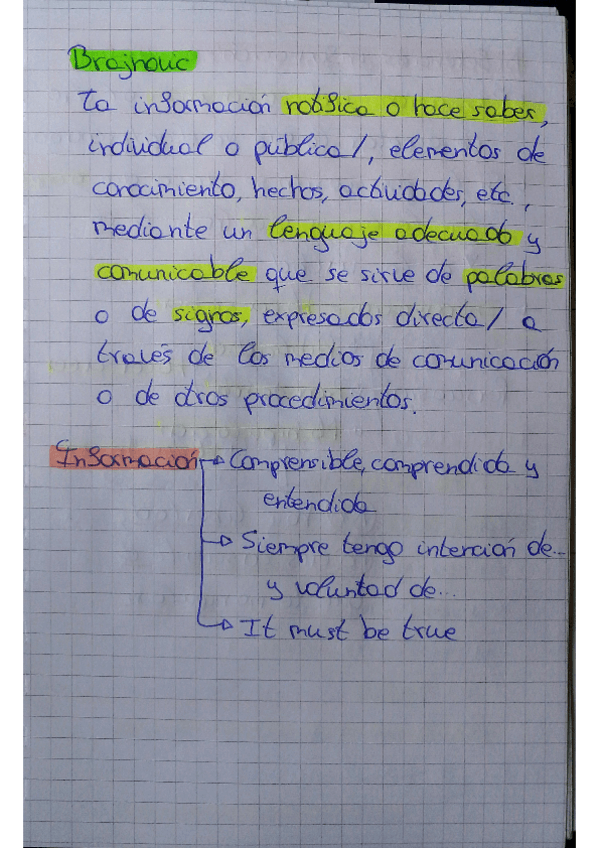 Brajnovic
La información notifica o hace saber,
individual o pública/, elementos de
conocimiento, hechos, actividades, etc.,
mediante un lenguaje adecuado y
comunicable que se sirve de palabras
o de signos, expresados directa/ a
través de los medios de comunicación
o de otros procedimientos.
Información → Comprensible, comprendida y
entendida
→ Siempre tengo intención de...
y voluntad de...
→ It must be true